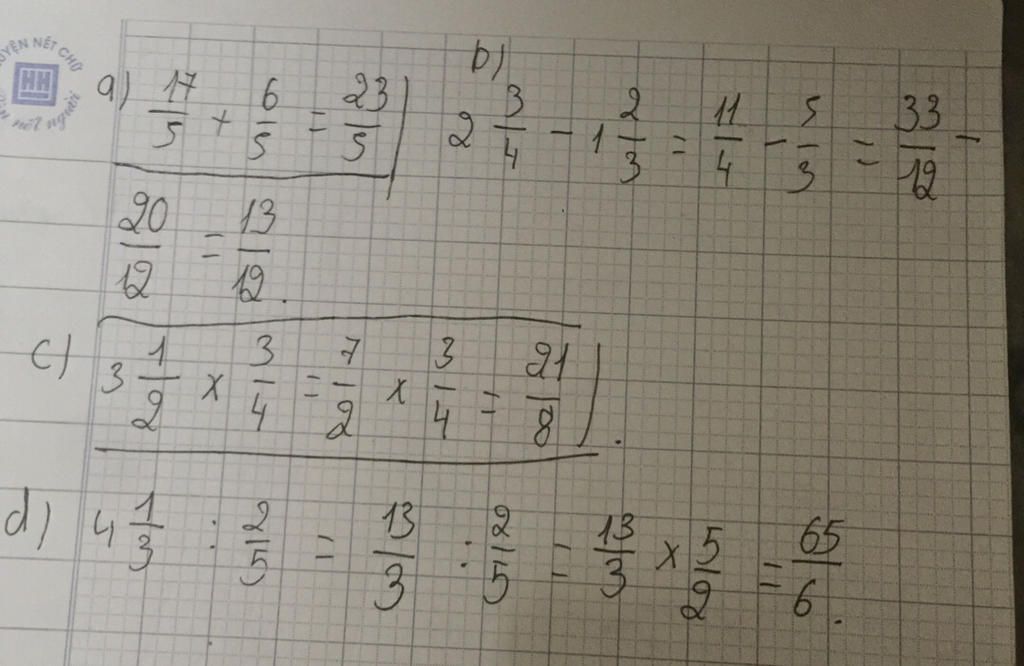 LUYỆN NÉT CHỮ
HH
Rèn nết người
a) 17/5 + 6/5 = 23/5
b) 2 3/4 - 1 2/3 = 11/4 - 5/3 = 33/12 -
20/12 = 13/12.
c) 3 1/2 x 3/4 = 7/2 x 3/4 = 21/8.
d) 4 1/3 : 2/5 = 13/3 : 2/5 = 13/3 x 5/2 = 65/6.